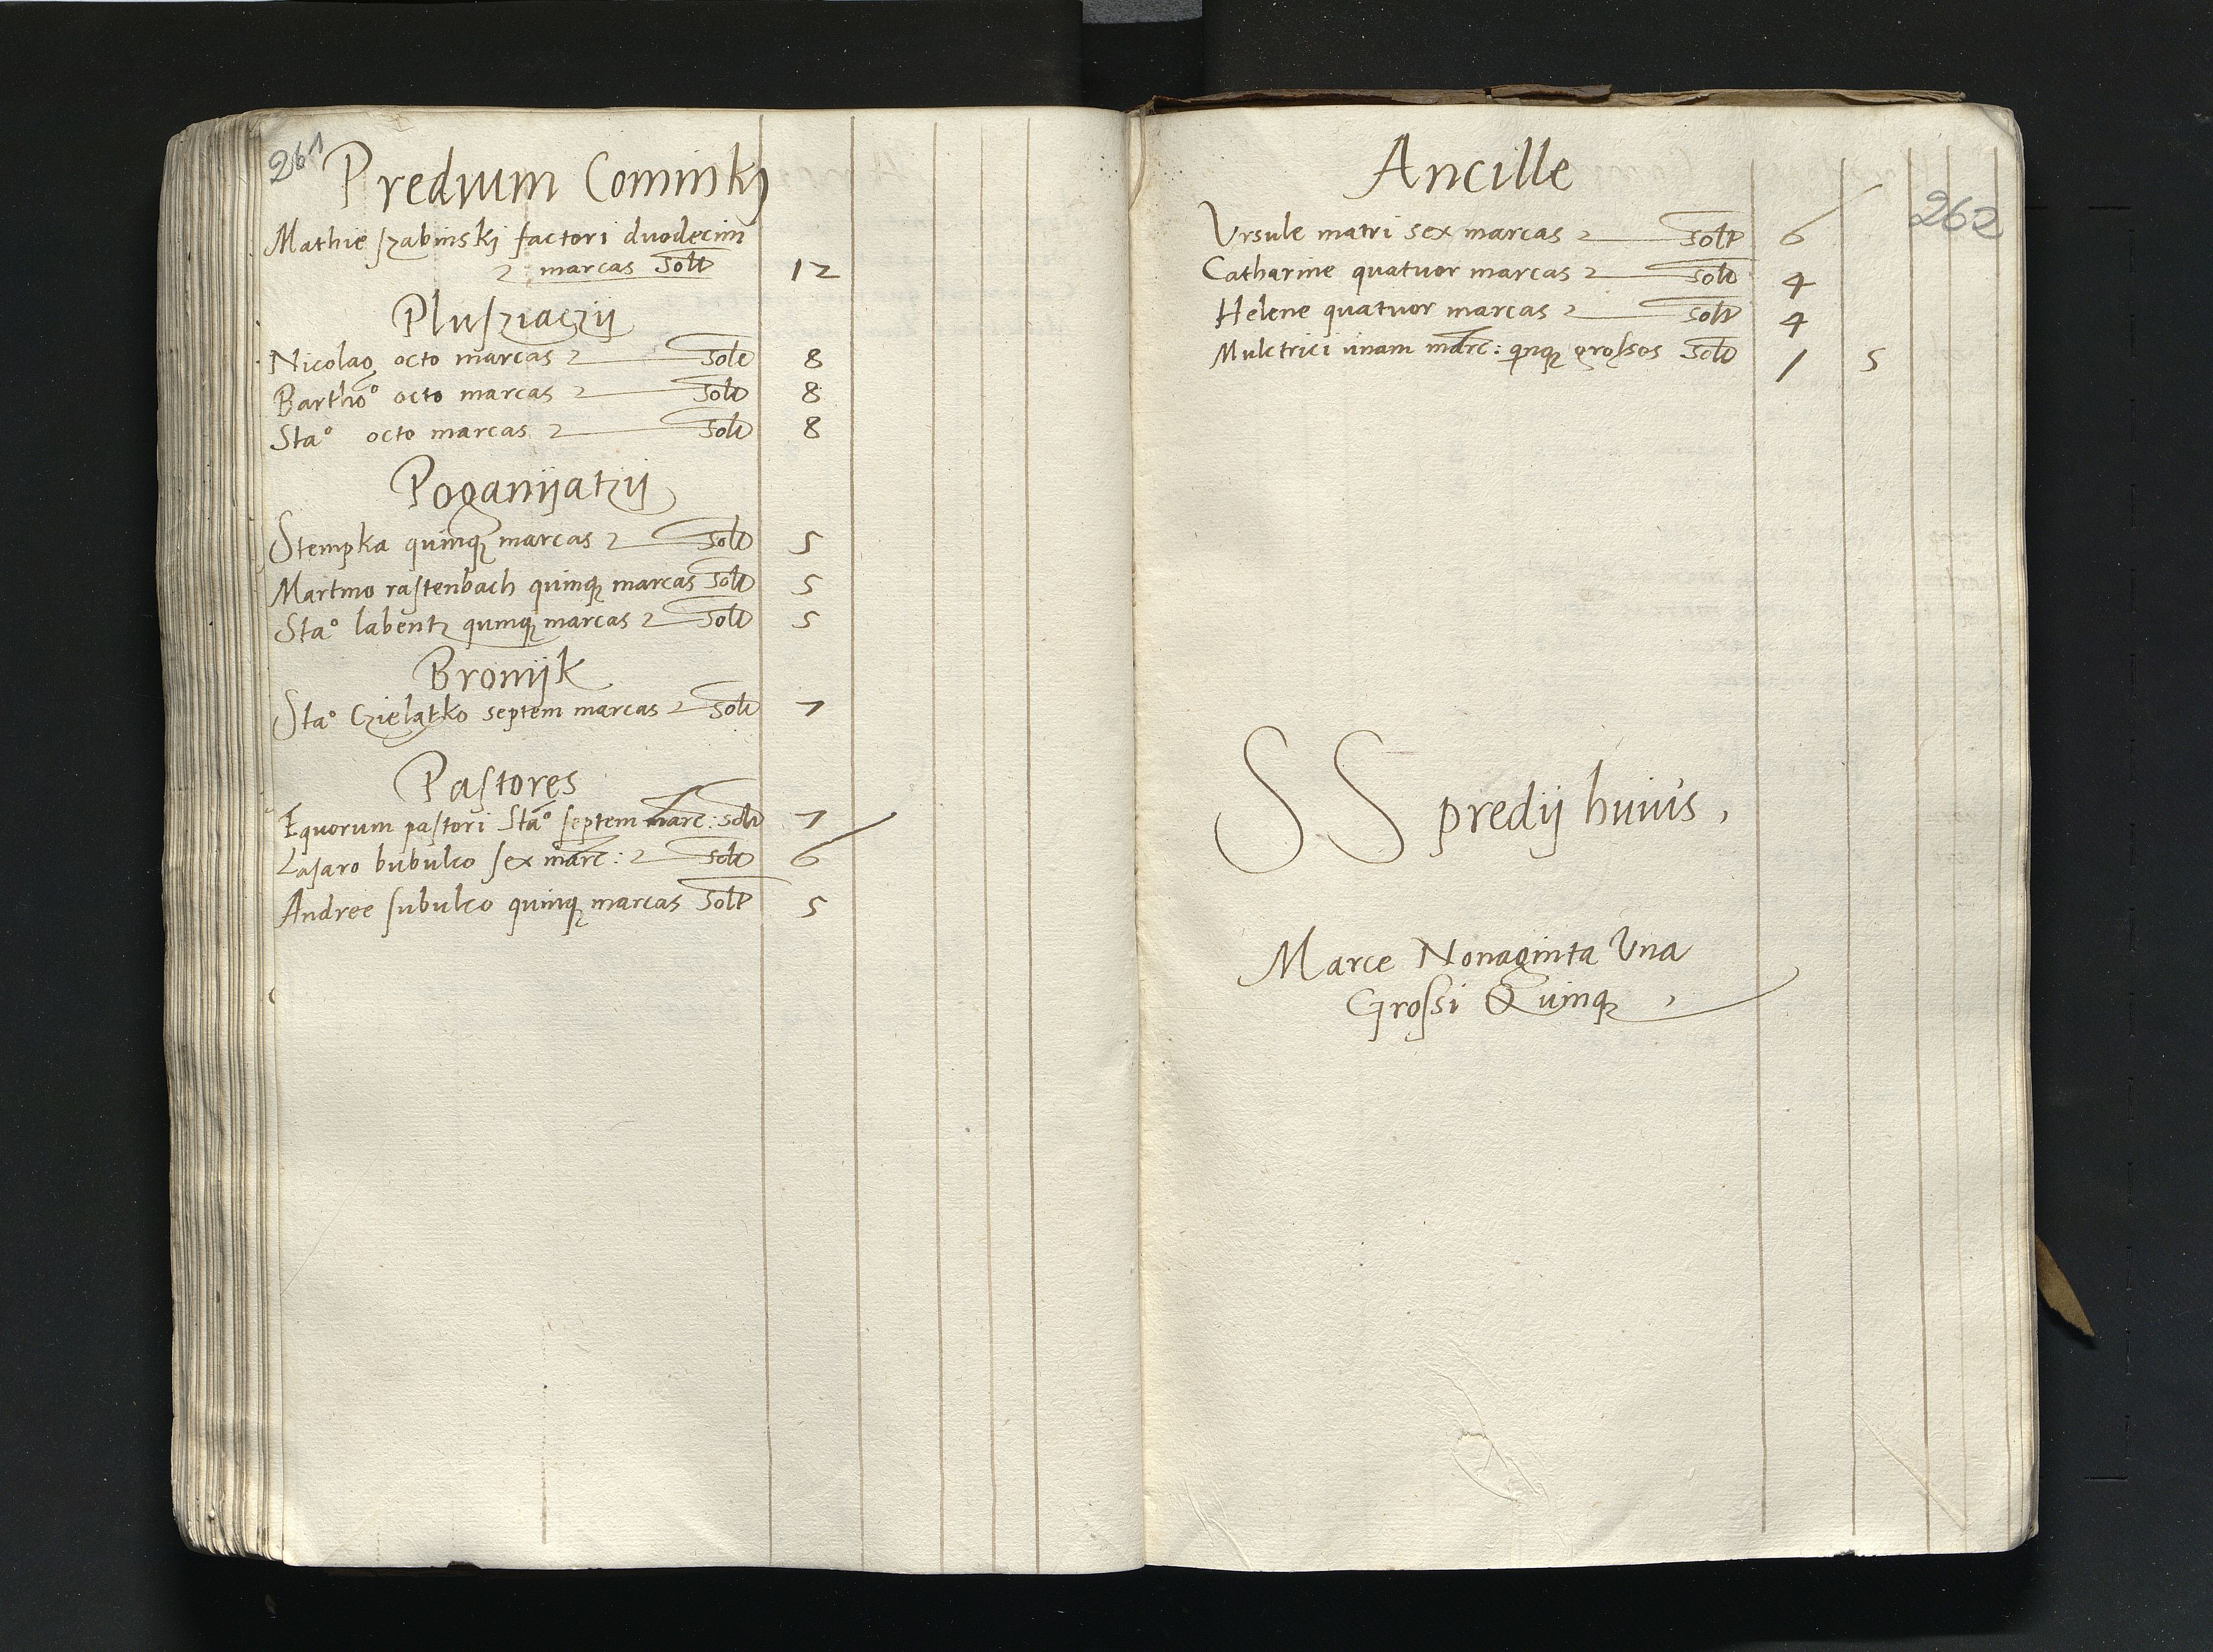 261
Predium Cominskj
Mathie szabinskj factori duodecim
marcas Solt 12
Plusziaczij
Nicolao octo marcas Solt 8
Bartho° octo marcas Solt 8
Sta° octo marcas Solt 8
Poganijatzij
Stempka quinq marcas Solt 5
Martino rastenbach quinq marcas Solt 5
Sta° labentz quinq marcas Solt 5
Bronijk
Sta° Czielątko septem marcas Solt 7
Pastores
Equorum pastori Sta° septem marc: Solt 7
Lasaro bubulco sex marc: Solt 6
Andree subulco quinq marcas Solt 5
262
Ancille
Vrsule matri sex marcas Solt 6
Catharine quatuor marcas Solt 4
Helene quatuor marcas Solt 4
Mulctrici unam marc: qinq grossos Solt 1 5
SS predij huius,
Marce Nonaginta Vna
Grossi Quinq,